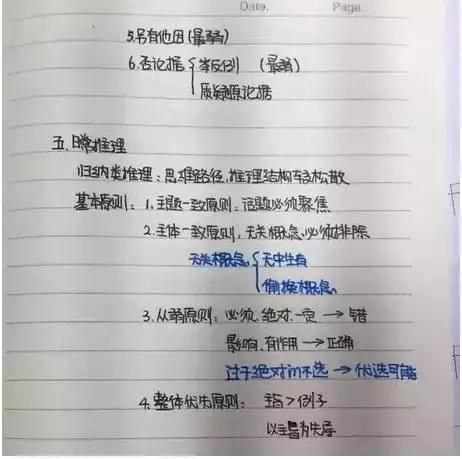 Date. Page.
5.另有他因(最弱)
6.否论据 举反例 (最弱)
质疑原论据
五.日常推理
归纳类推理:思维路径,推理结构较松散
基本原则:1.主题一致原则:话题必须聚焦
2.主体一致原则:无关概念必须排除
无关概念 无中生有
偷换概念
3.从弱原则:必须.绝对.一定→错
影响.有作用→正确
过于绝对的不选→优选可能
4.整体优先原则: 主旨>例子
以主旨为先导